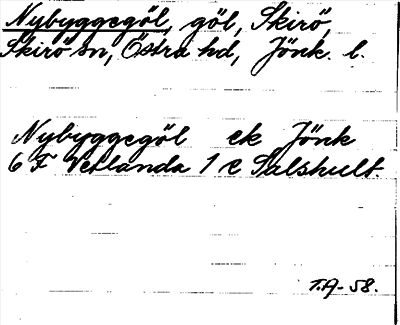 Nybyggegöl, göl, Skirö,
Skirö sn, Östra hd, Jönk. l.
Nybyggegöl ek Jönk
6 F Vetlanda 1 c Salshult
T.A-58.